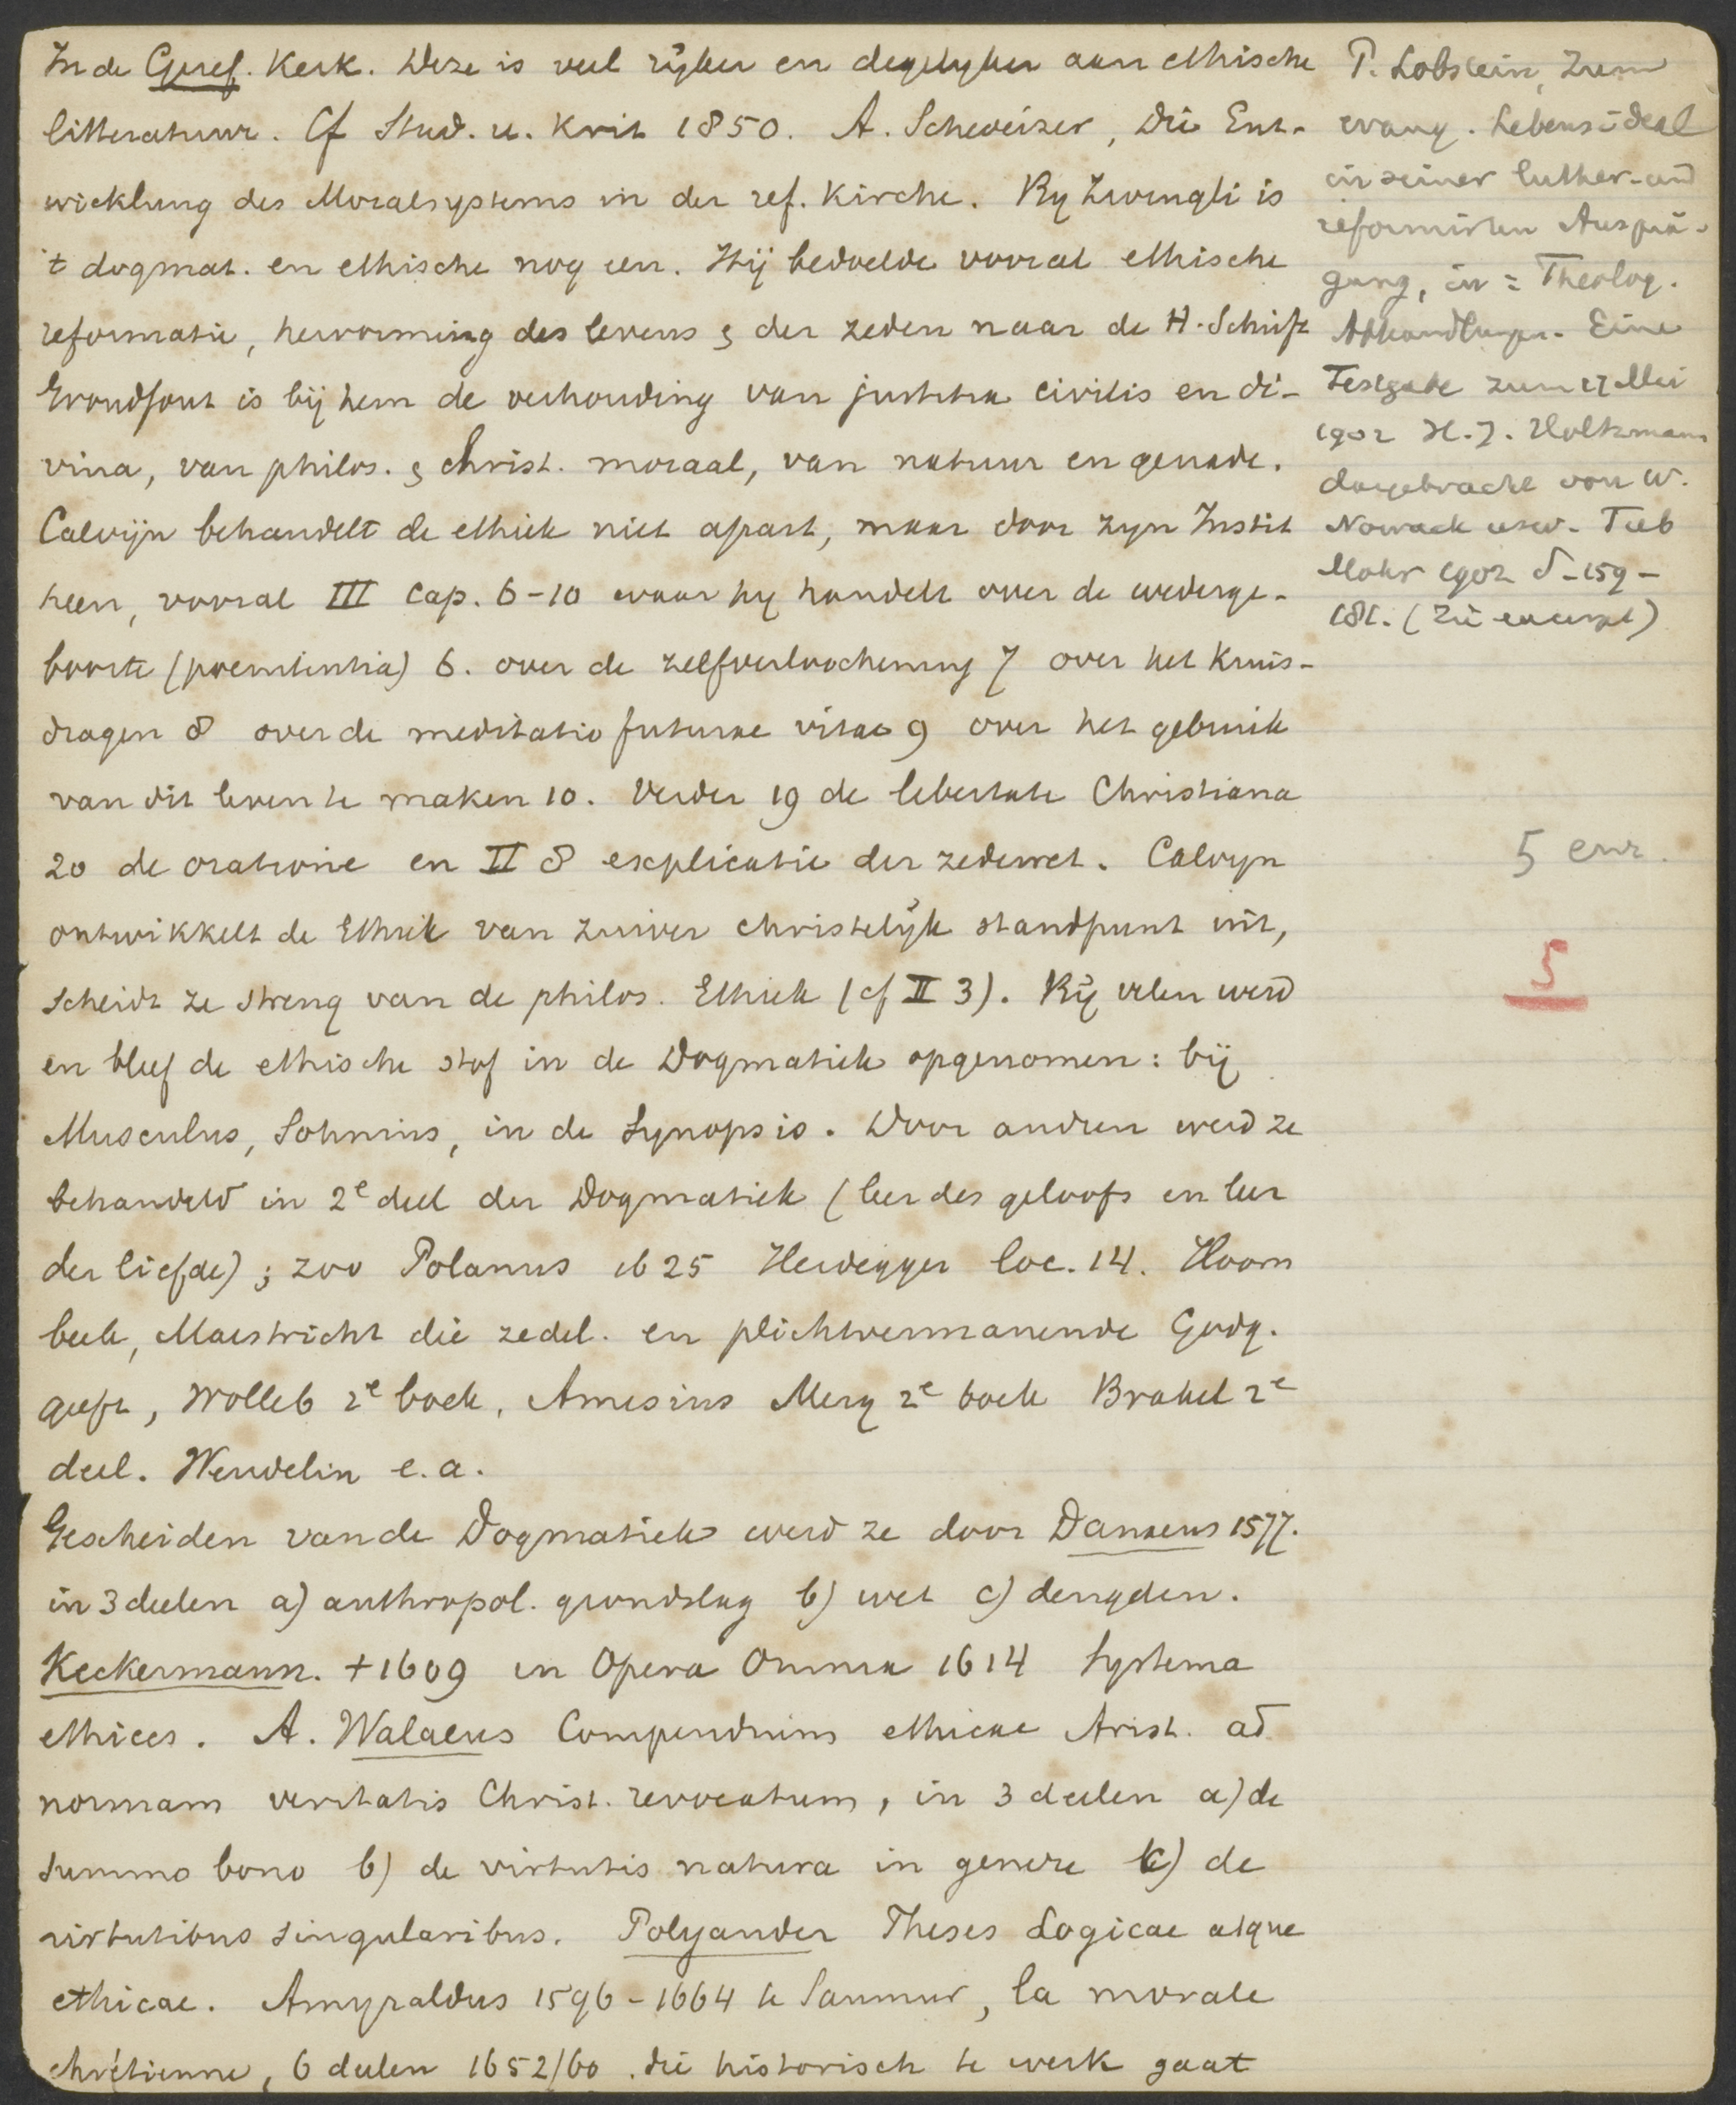 In de Geref. Kerk. Deze is veel rijker en degelyker aan ethische
litteratuur. Cf Stud. u. Krit 1850. A. Schweizer, Die Ent-
wicklung des Moralsystems in der ref. Kirche. By Zwingli is
't dogmat. en ethische nog een. Hij bedoelde vooral ethische
reformatie, hervorming des levens & der zeden naar de H. Schrift
Grondfout is bij hem de verhouding van justitia civilis en di-
vina, van philos. & Christ. moraal, van natuur en genade.
Calvijn behandelt de ethiek niet apart, maar door zyn Instit
heen, vooral III Cap. 6-10 waar hy handelt over de wederge-
boorte (poenitentia) 6. over de zelfverloochening 7 over het kruis-
dragen 8 over de meditatio futurae vitae 9 over het gebruik
van dit leven te maken 10. Verder 19 de libertate Christiana
20 de oratione en II 8 explicatie der zedewet. Calvyn
ontwikkelt de Ethiek van zuiver christelijk standpunt uit,
scheidt ze streng van de philos. Ethiek (cf II 3). Bij velen werd
en bleef de ethische stof in de Dogmatiek opgenomen: bij
Musculus, Sohnius, in de Synopsis. Door andren werd ze
behandeld in 2e deel der Dogmatiek (leer des geloofs en leer
der liefde); zoo Polanus 1625 Heidegger loc. 14. Hoorn
beek, Maestricht die zedel. en plichtvermanende Godg.
geeft, Wolleb 2e boek, Amesius Merg 2e boek Brakel 2e
deel. Wendelin e.a.
Gescheiden van de Dogmatiek werd ze door Danaeus 1577.
in 3 deelen a) anthropol. grondslag b) wet c) deugden.
Keckermann. +1609 in Opera Omnia 1614 Systema
ethices. A. Walaeus Compendium ethicae Arist. ad
normam veritatis Christ. revocatum, in 3 deelen a) de
summo bono b) de virtutis natura in genere c) de
virtutibus singularibus. Polyander Theses Logicae atque
ethicae. Amyraldus 1596-1664 te Saumur, la morale
chrétienne, 6 deelen 1652/60. die historisch te werk gaat
P. Lobstein, Zum
evang. Lebensideal
in seiner luther. und
reformirten Ausprä-
gung, in: Theolog.
Abhandlungen. Eine
Festgabe zum 17 Mei
1902 H. J. Holtzmann
dargebracht von W.
Nowack usw. Tub
Mohr 1902 S. 159-
181. (Zie excerpt)
5
5